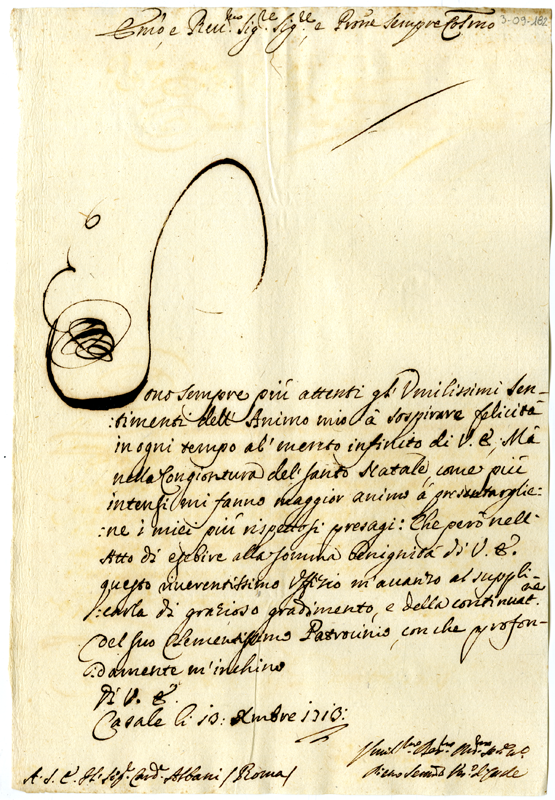 Em̃o, e Reu.mo Sig.re Sig.re, e Prõne Sempre Col̃mo
3-09-182
Sono sempre più attenti gl'Vmilissimi Sen=
:timenti dell'Animo mio à sospirare felicità
in ogni tempo al' merito infinito di V. E., Mà
nella Congiontura del' Santo Natale come più
intensi mi fanno maggior animo à presentarglie=
:ne i miei più rispettosi presagi: Che però nell'
Atto di esebire alla somma benignità di V. E.
questo riuerentissimo Vffizio m'auanzo al suppli=
:carla di grazioso gradimento, e della continuat.ne
del suo Clementissimo Patrocinio, con che profon=
:damente m'inchino
Di V. E.
Casale li 13: Xmbre 1713:
A. S. E. Il Sig.r Card.e Albani / Roma /